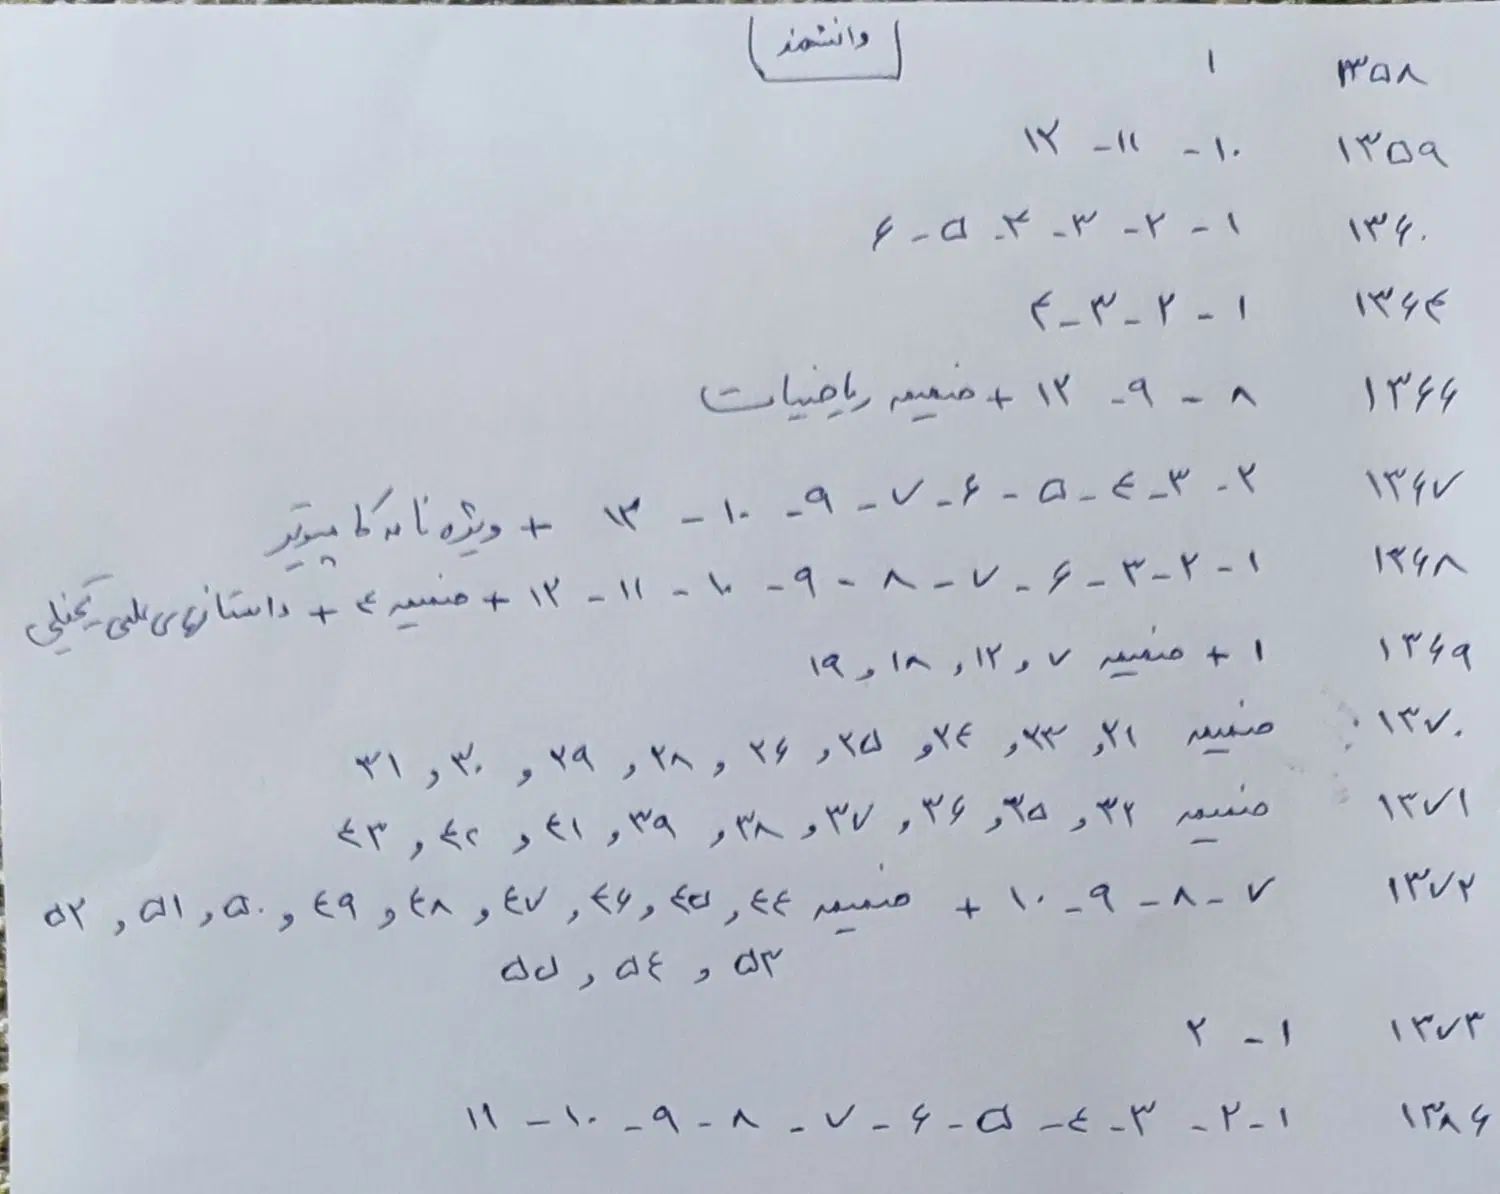 دانشمند
۱۳۵۸ ۱
۱۳۵۹ ۱۰ - ۱۱ - ۱۲
۱۳۶۰ ۱ - ۲ - ۳ - ۴ - ۵ - ۶
۱۳۶۴ ۱ - ۲ - ۳ - ۴
۱۳۶۶ ۸ - ۹ - ۱۲ + ضمیمه ریاضیات
۱۳۶۷ ۲ - ۳ - ۴ - ۵ - ۶ - ۷ - ۹ - ۱۰ - ۱۳ + ویژه نامه کامپیوتر
۱۳۶۸ ۱ - ۲ - ۳ - ۶ - ۷ - ۸ - ۹ - ۱۰ - ۱۱ - ۱۲ + ضمیمه ۴ + داستانهای علمی تخیلی
۱۳۶۹ ۱ + ضمیمه ۷ و ۱۲ و ۱۸ و ۱۹
۱۳۷۰ ضمیمه ۲۱ و ۲۳ و ۲۴ و ۲۵ و ۲۶ و ۲۸ و ۲۹ و ۳۰ و ۳۱
۱۳۷۱ ضمیمه ۳۲ و ۳۵ و ۳۶ و ۳۷ و ۳۸ و ۳۹ و ۴۱ و ۴۲ و ۴۳
۱۳۷۲ ۷ - ۸ - ۹ - ۱۰ + ضمیمه ۴۴ و ۴۵ و ۴۶ و ۴۷ و ۴۸ و ۴۹ و ۵۰ و ۵۱ و ۵۲
۵۳ و ۵۴ و ۵۵
۱۳۷۳ ۱ - ۲
۱۳۸۶ ۱ - ۲ - ۳ - ۴ - ۵ - ۶ - ۷ - ۸ - ۹ - ۱۰ - ۱۱